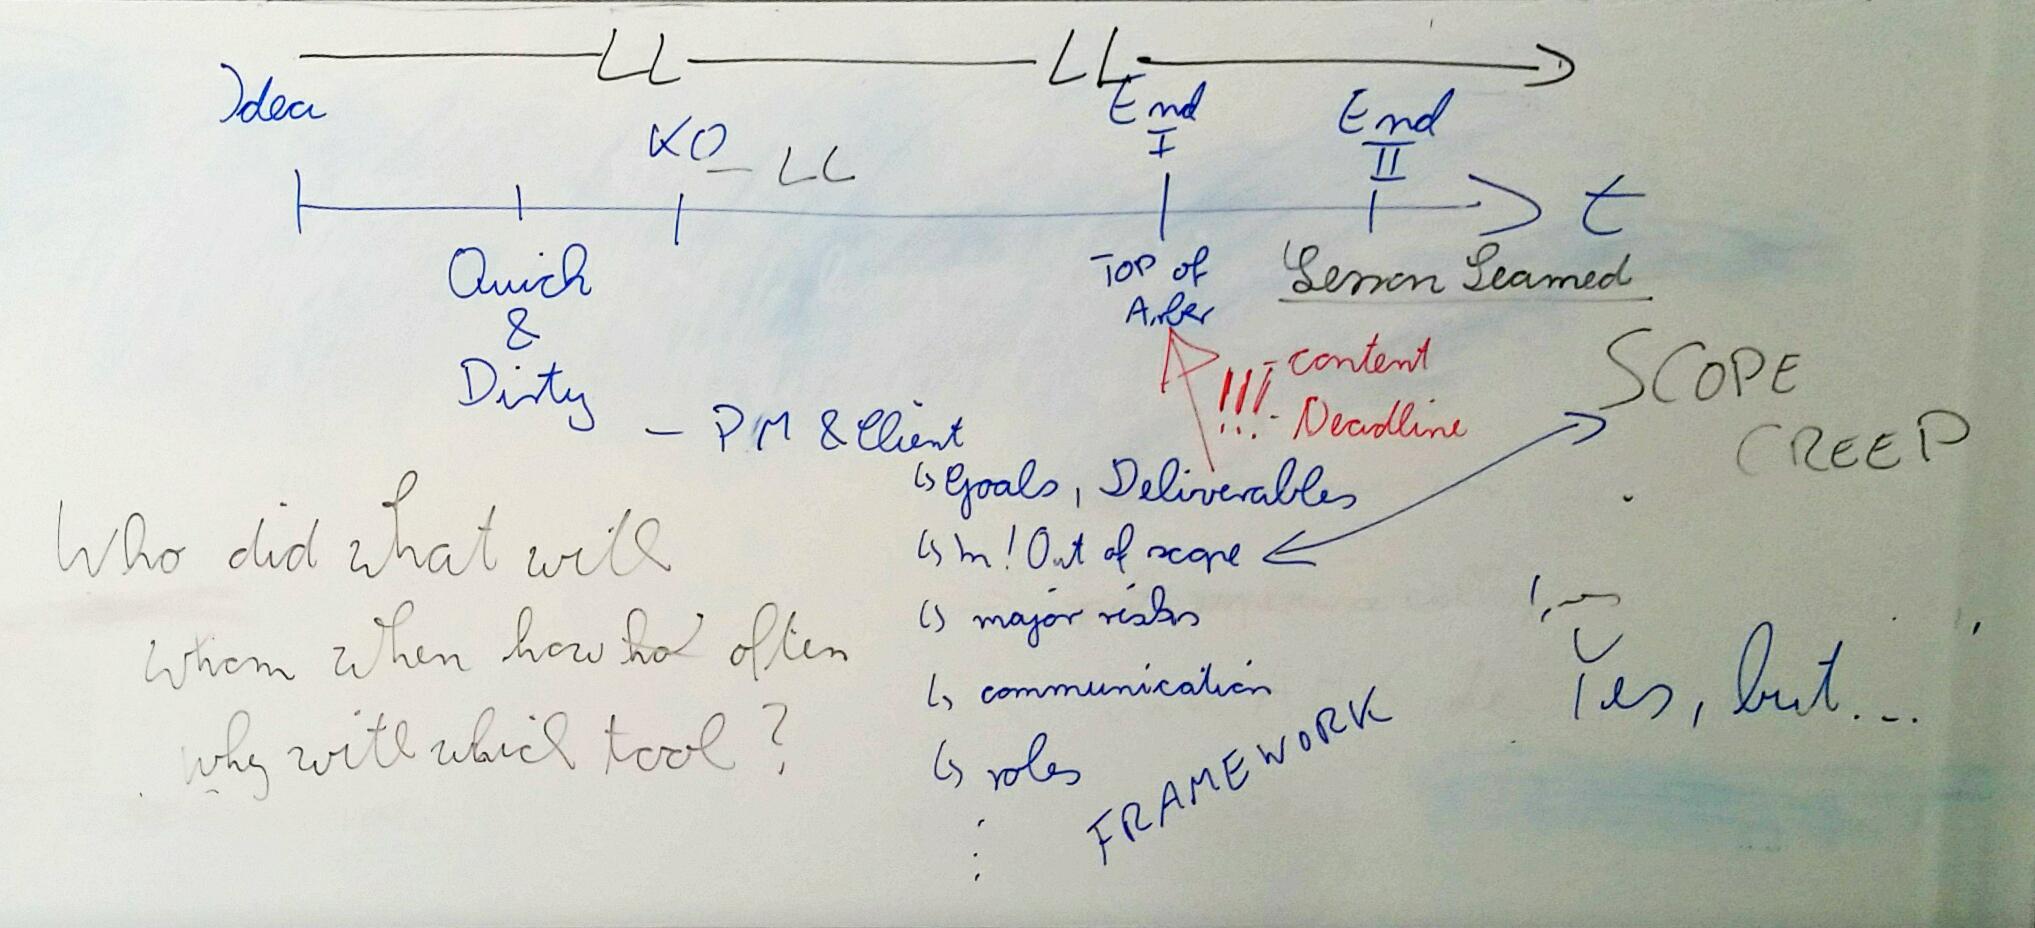 LL LL
Idea
KO - LL
End
I
End
II
t
Quick
&
Dirty
Top of
Lesson Learned
!!! - content
- Deadline
SCOPE
CREEP
- PM & Client
↳ Goals, Deliverables
↳ In! Out of scope
↳ major risks
↳ communication
↳ roles
FRAMEWORK
Who did what with
whom when how how often
why with which tool?
Yes, but...